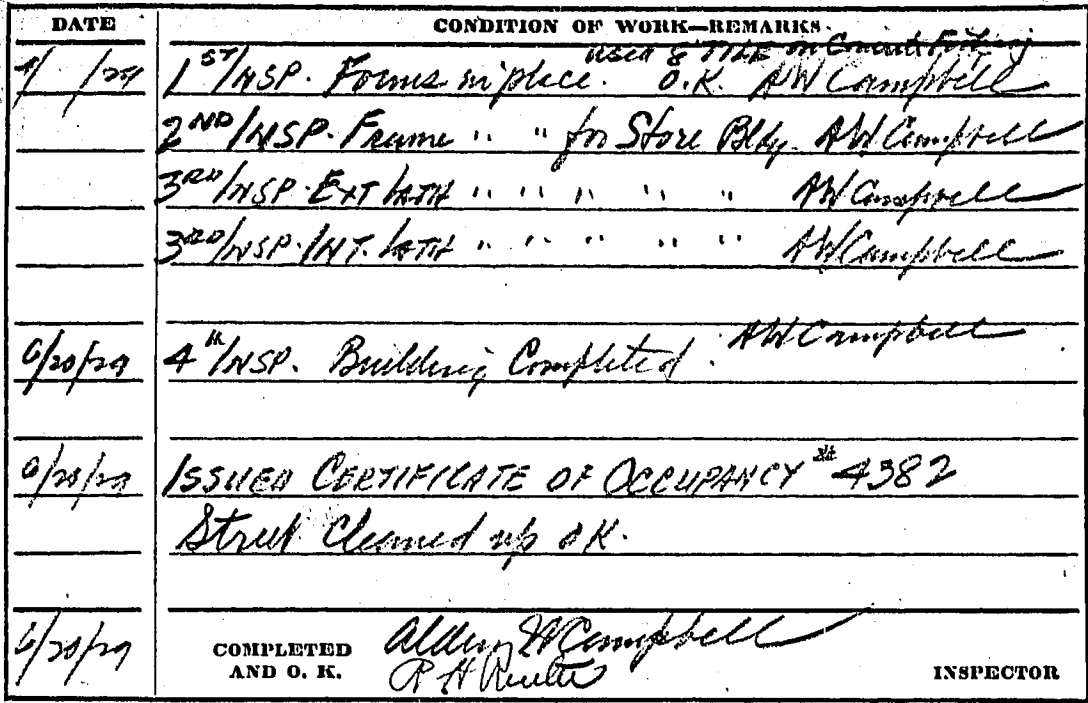 DATE CONDITION OF WORK—REMARKS.
used 8 TILE on Concrete Footing
4/ /29 1ST INSP. Forms in place. O.K. AW Campbell
2ND INSP. Frame " " for Store Bldg. AW Campbell
3RD INSP. EXT LATH " " " " " AW Campbell
3RD INSP. INT. LATH " " " " " AW Campbell
6/20/29 4th INSP. Building Completed. AW Campbell
6/20/29 ISSUED CERTIFICATE OF OCCUPANCY # 4382
Street Cleaned up OK.
6/20/29 COMPLETED Alden W Campbell
AND O. K. R H INSPECTOR